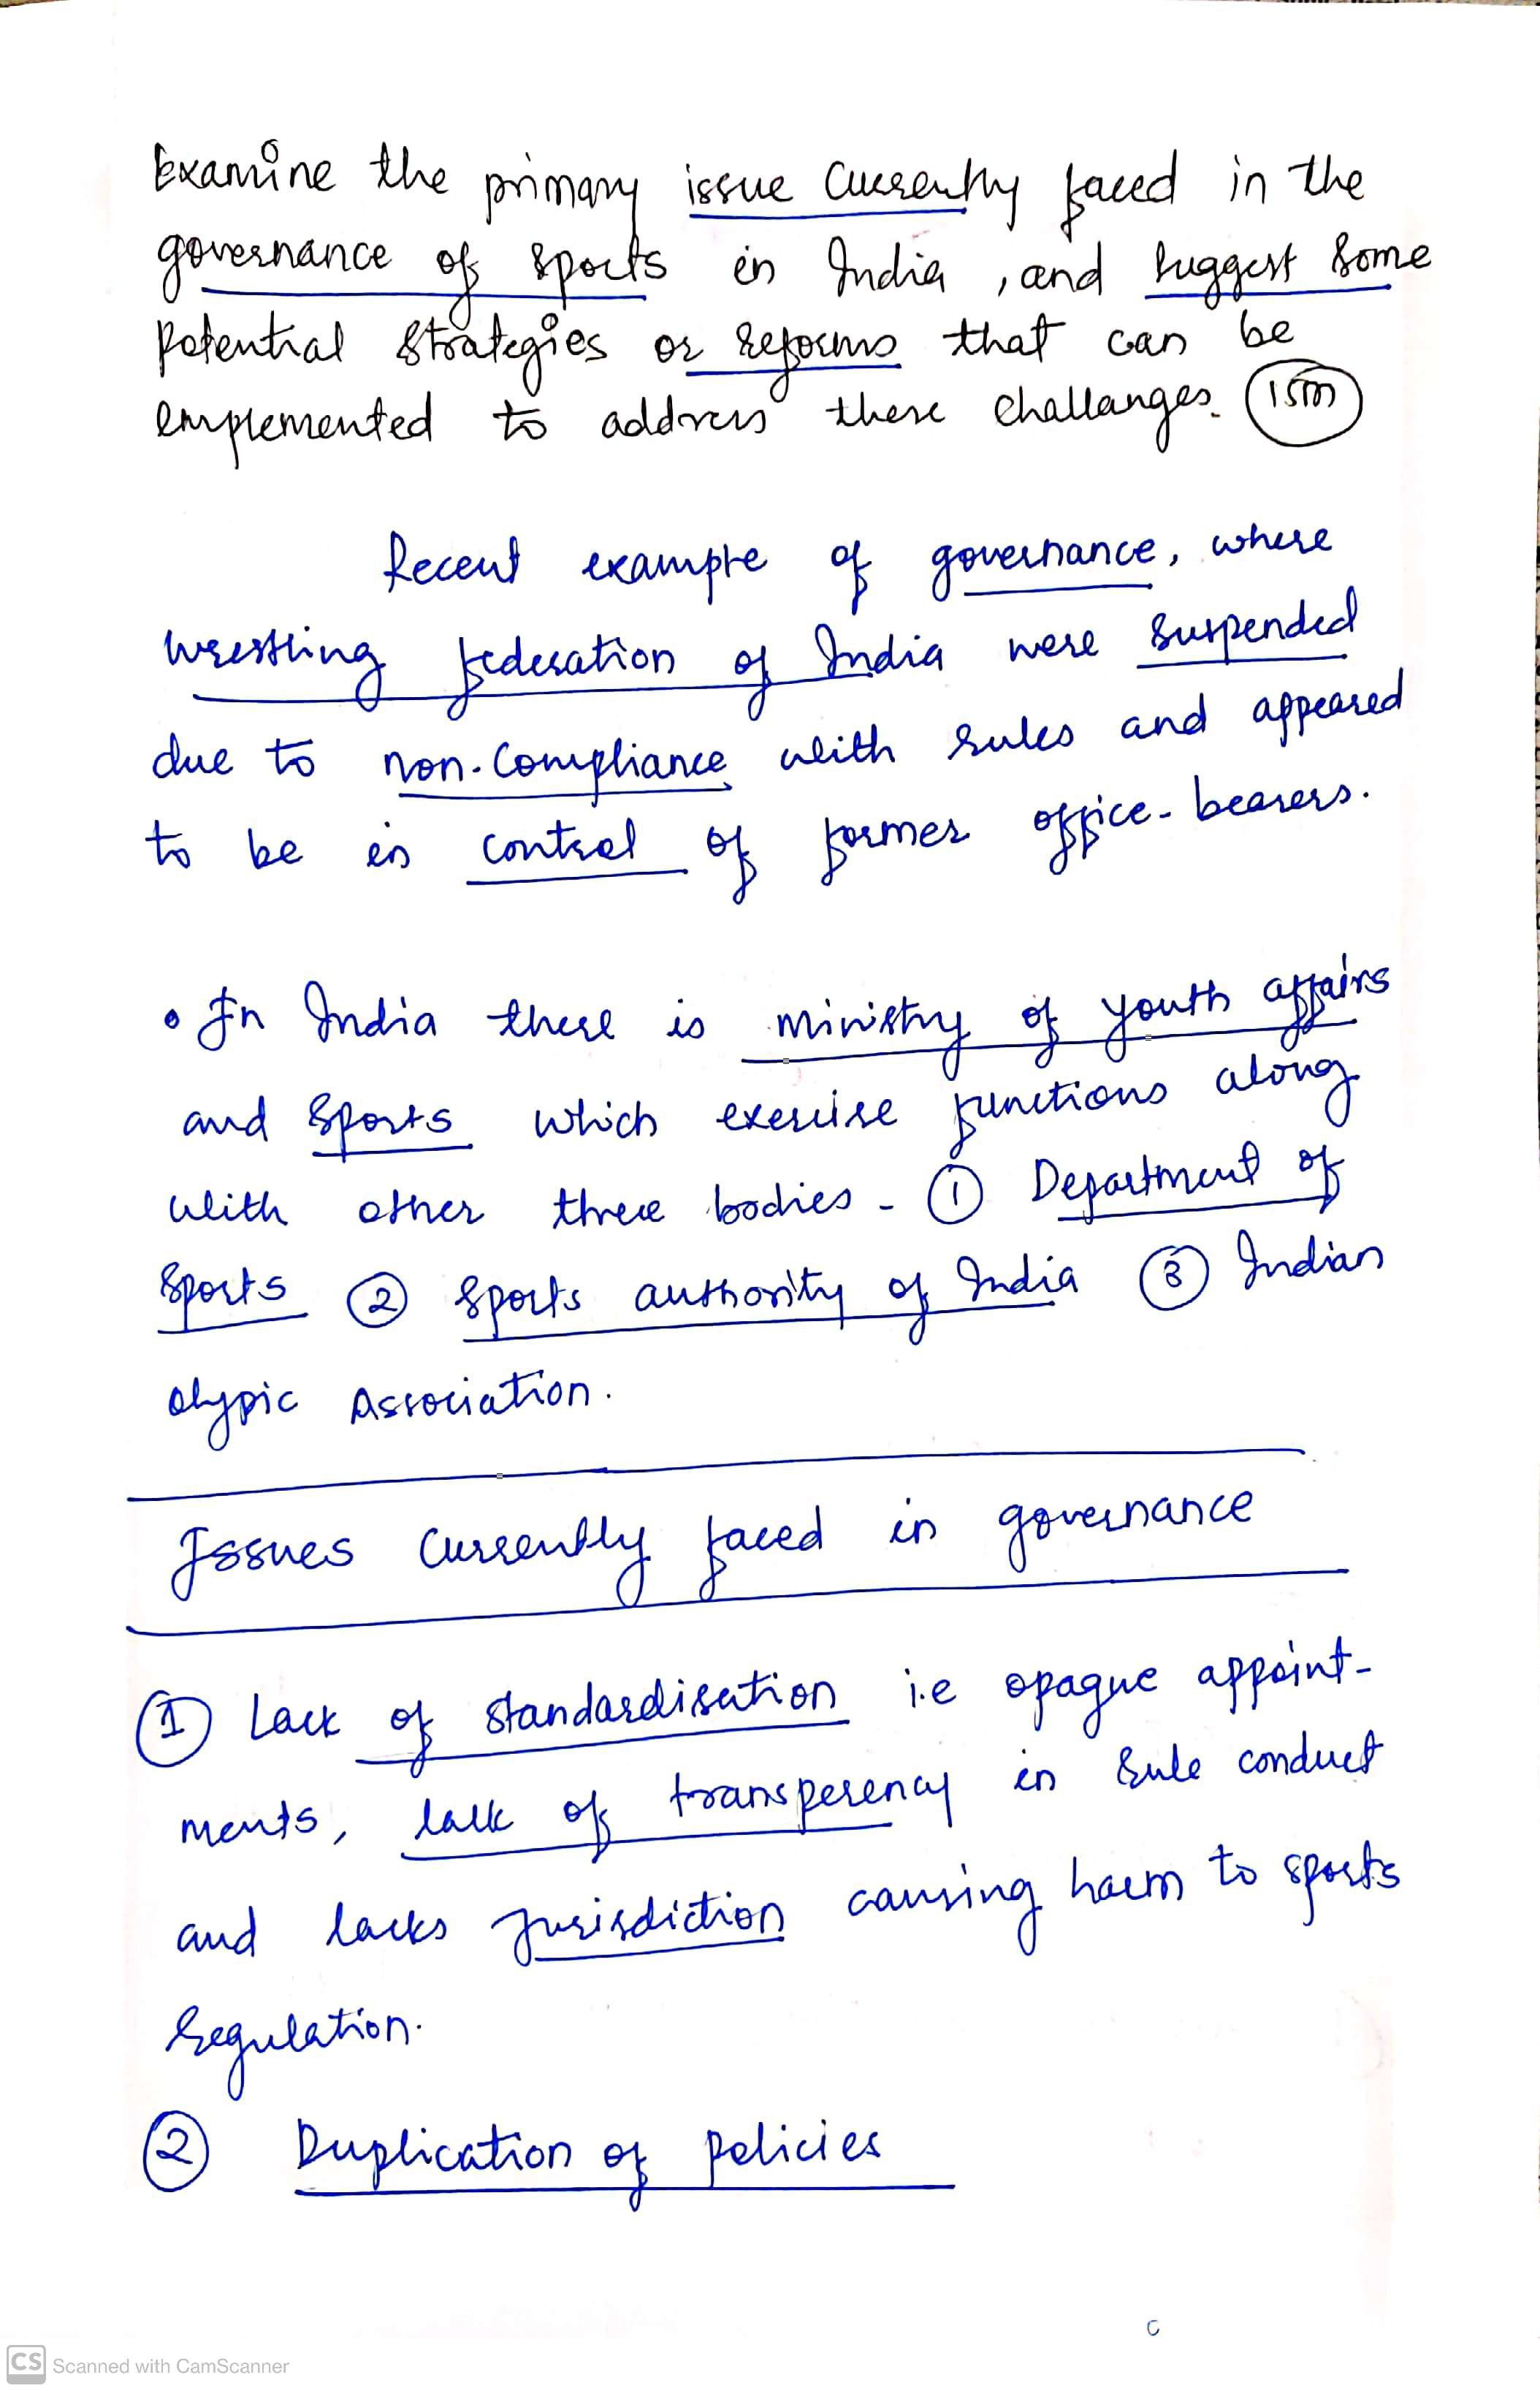 Examine the primary issue currently faced in the
governance of sports in India, and suggest some
Potential strategies or reforms that can be
emplemented to address these challanges. 15m
Recent example of governance, where
wrestling federation of India were suspended
due to non-compliance with rules and appeared
to be in control of former office-bearers.
• In India there is ministry of youth affairs
and sports which exercise functions along
with other three bodies - ① Department of
sports ② sports authority of India ③ Indian
olypic Association.
Issues currently faced in governance
① Lack of standardisation i.e opaque appoint-
ments, lack of transperency in rule conduct
and lacks jurisdiction causing harm to sports
regulation.
② Duplication of policies
CS Scanned with CamScanner